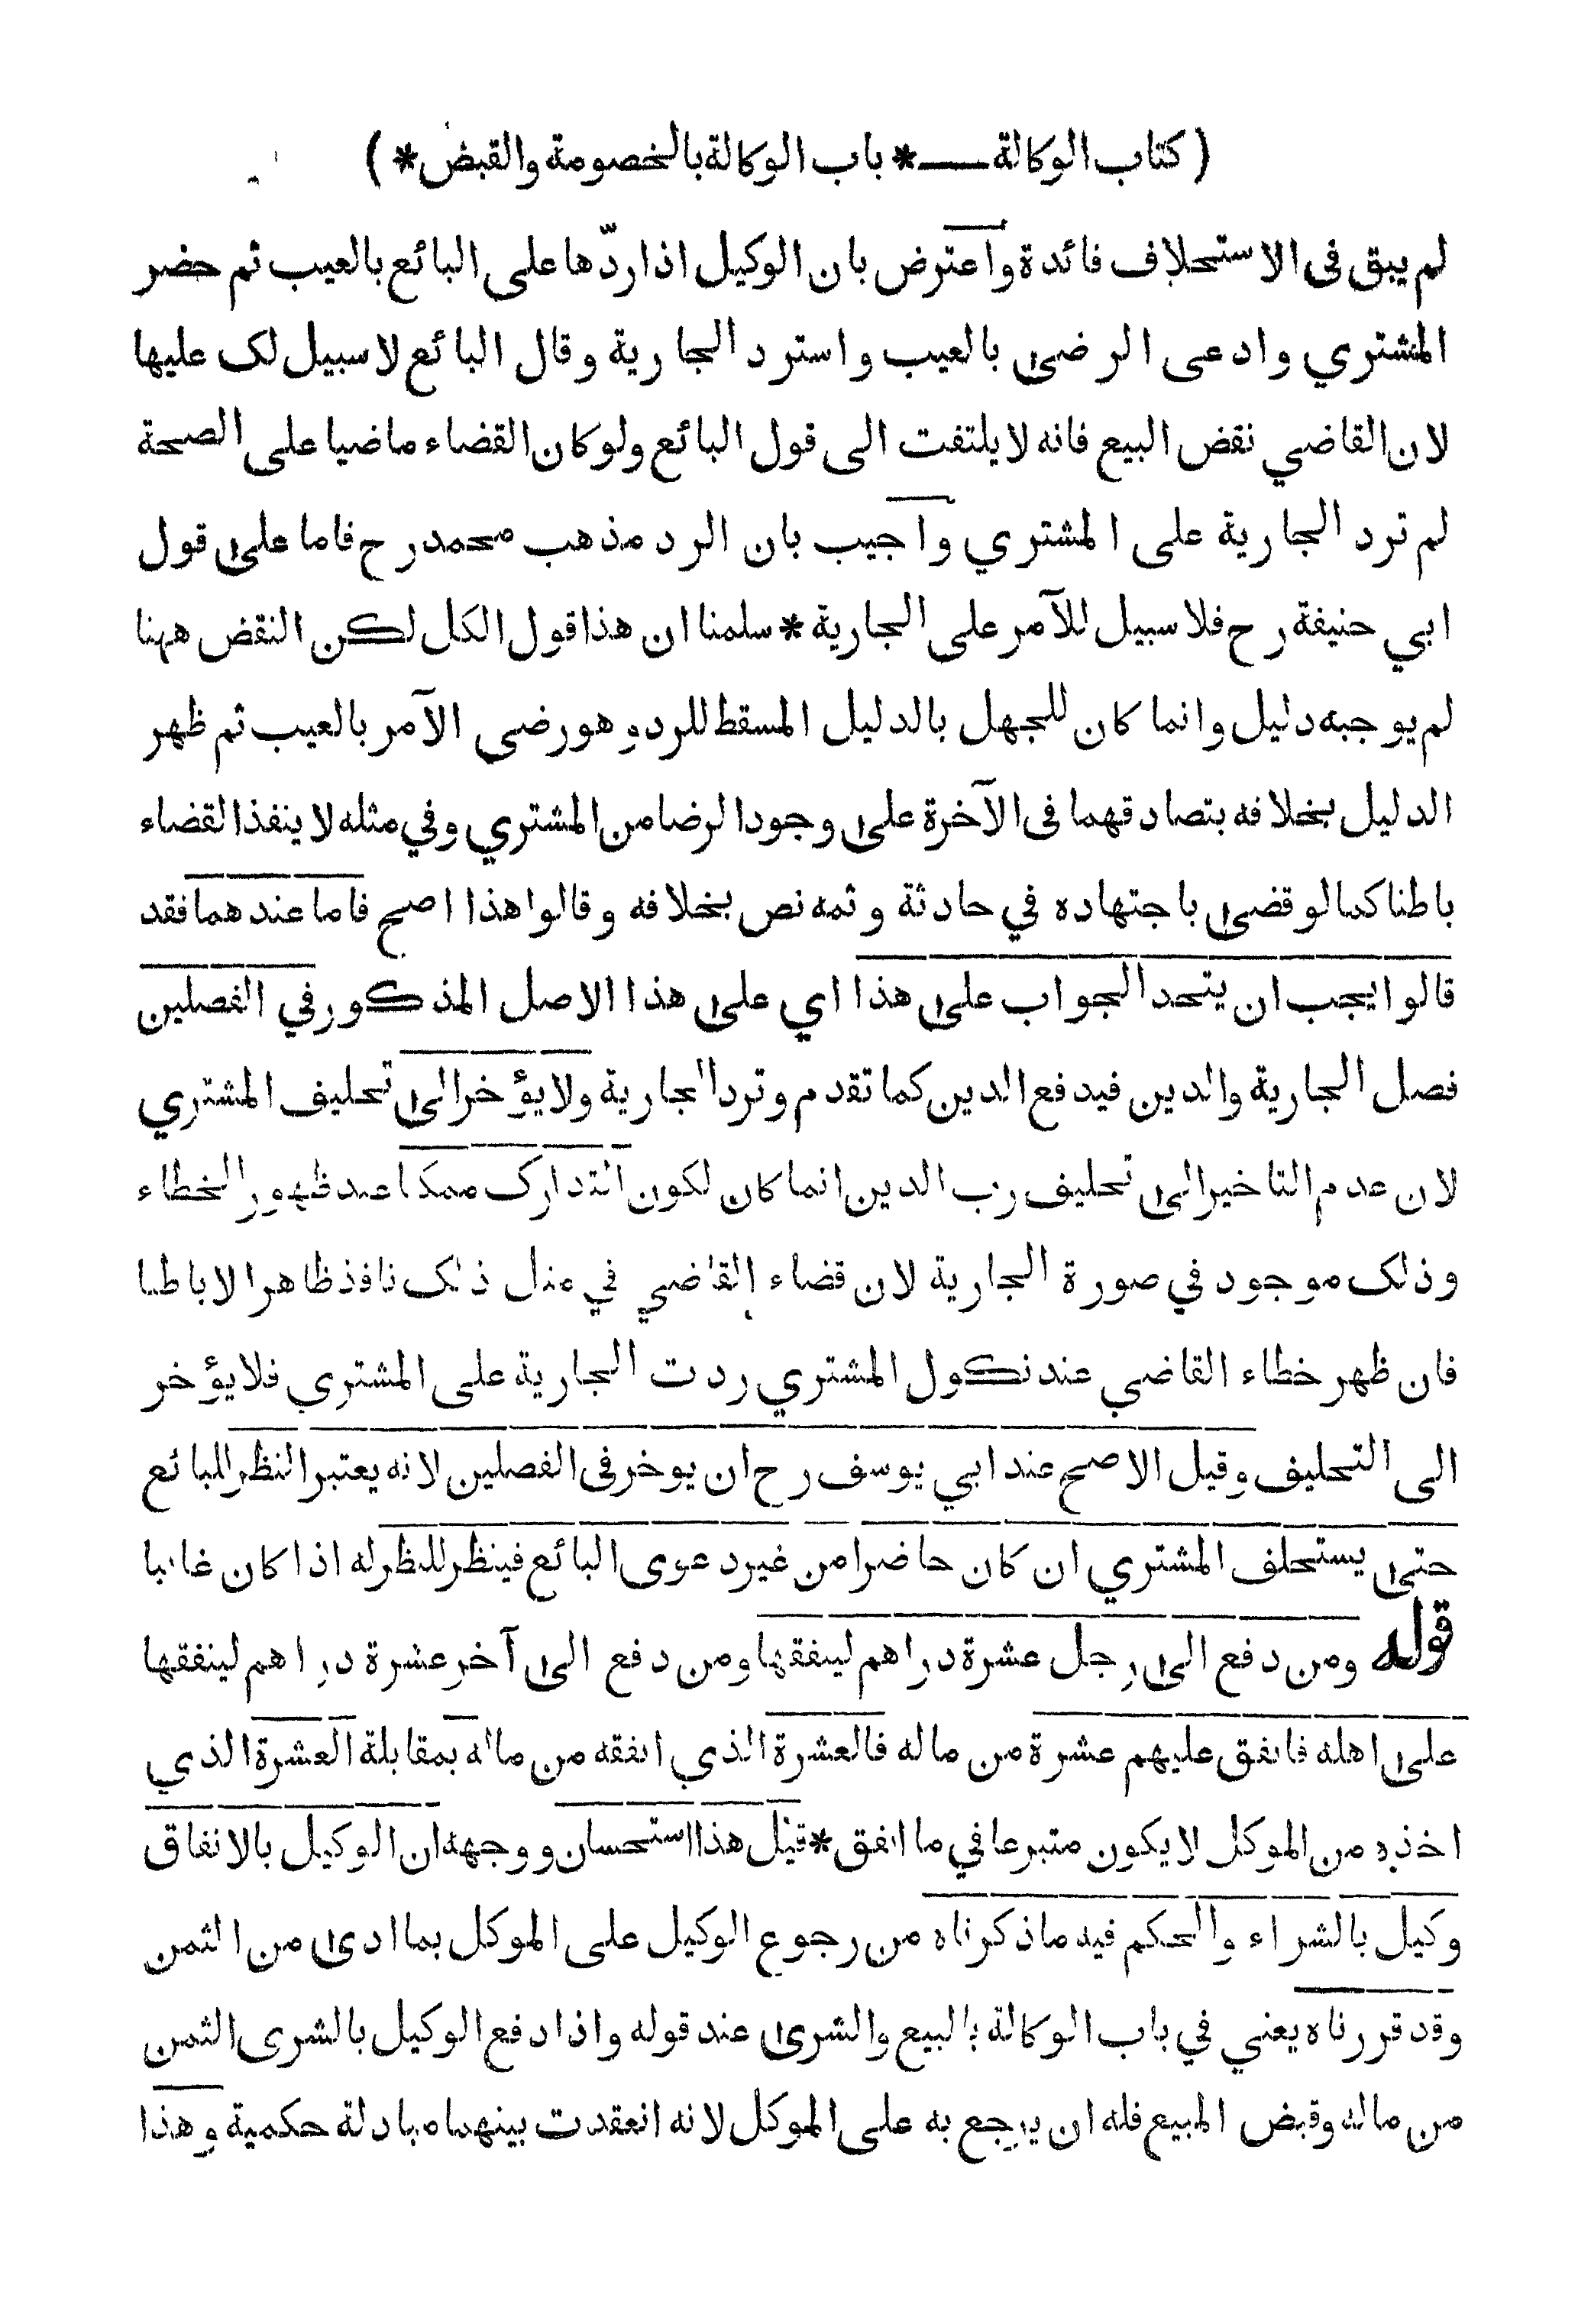 ( كتاب الوكالة ــــ * باب الوكالة بالخصومة والقبض * )
لم يبق فى الاستحلاف فائدة واعترض بان الوكيل اذا ردّها على البائع بالعيب ثم حضر
المشتري وادعى الرضى بالعيب واسترد الجارية وقال البائع لا سبيل لك عليها
لان القاضي نقض البيع فانه لا يلتفت الى قول البائع ولو كان القضاء ماضيا على الصحة
لم ترد الجارية على المشتري واجيب بان الرد مذهب محمد رح فاما على قول
ابي حنيفة رح فلا سبيل للآمر على الجارية * سلمنا ان هذا قول الكل لكن النقض ههنا
لم يوجبه دليل وانما كان للجهل بالدليل المسقط للرد وهو رضى الآمر بالعيب ثم ظهر
الدليل بخلافه بتصادقهما فى الآخرة على وجود الرضا من المشتري وفي مثله لا ينفذ القضاء
باطنا كما لو قضى باجتهاده في حادثة وثمه نص بخلافه وقالوا هذا اصح فاما عندهما فقد
قالوا يجب ان يتحد الجواب على هذا اي على هذا الاصل المذكور في الفصلين
فصل الجارية والدين فيدفع الدين كما تقدم وترد الجارية ولا يؤخر الى تحليف المشتري
لان عدم التاخير الى تحليف رب الدين انما كان لكون التدارك ممكنا عند ظهور الخطاء
وذلك موجود في صورة الجارية لان قضاء القاضي في مثل ذلك نافذ ظاهرا لا باطنا
فان ظهر خطاء القاضي عند نكول المشتري ردت الجارية على المشتري فلا يؤخر
الى التحليف وقيل الاصح عند ابي يوسف رح ان يوخر فى الفصلين لانه يعتبر النظر للبائع
حتى يستحلف المشتري ان كان حاضرا من غير دعوى البائع فينظر للنظر له اذا كان غائبا
قوله ومن دفع الى رجل عشرة دراهم لينفقها ومن دفع الى آخر عشرة دراهم لينفقها
على اهله فانفق عليهم عشرة من ماله فالعشرة الذي انفقه من ماله بمقابلة العشرة الذي
اخذه من الموكل لا يكون متبرعا في ما انفق * قيل هذا استحسان ووجهه ان الوكيل بالانفاق
وكيل بالشراء والحكم فيه ما ذكرناه من رجوع الوكيل على الموكل بما ادى من الثمن
وقد قررناه يعني في باب الوكالة بالبيع والشرى عند قوله واذا دفع الوكيل بالشرى الثمن
من ماله وقبض المبيع فله ان يرجع به على الموكل لانه انعقدت بينهما مبادلة حكمية وهذا